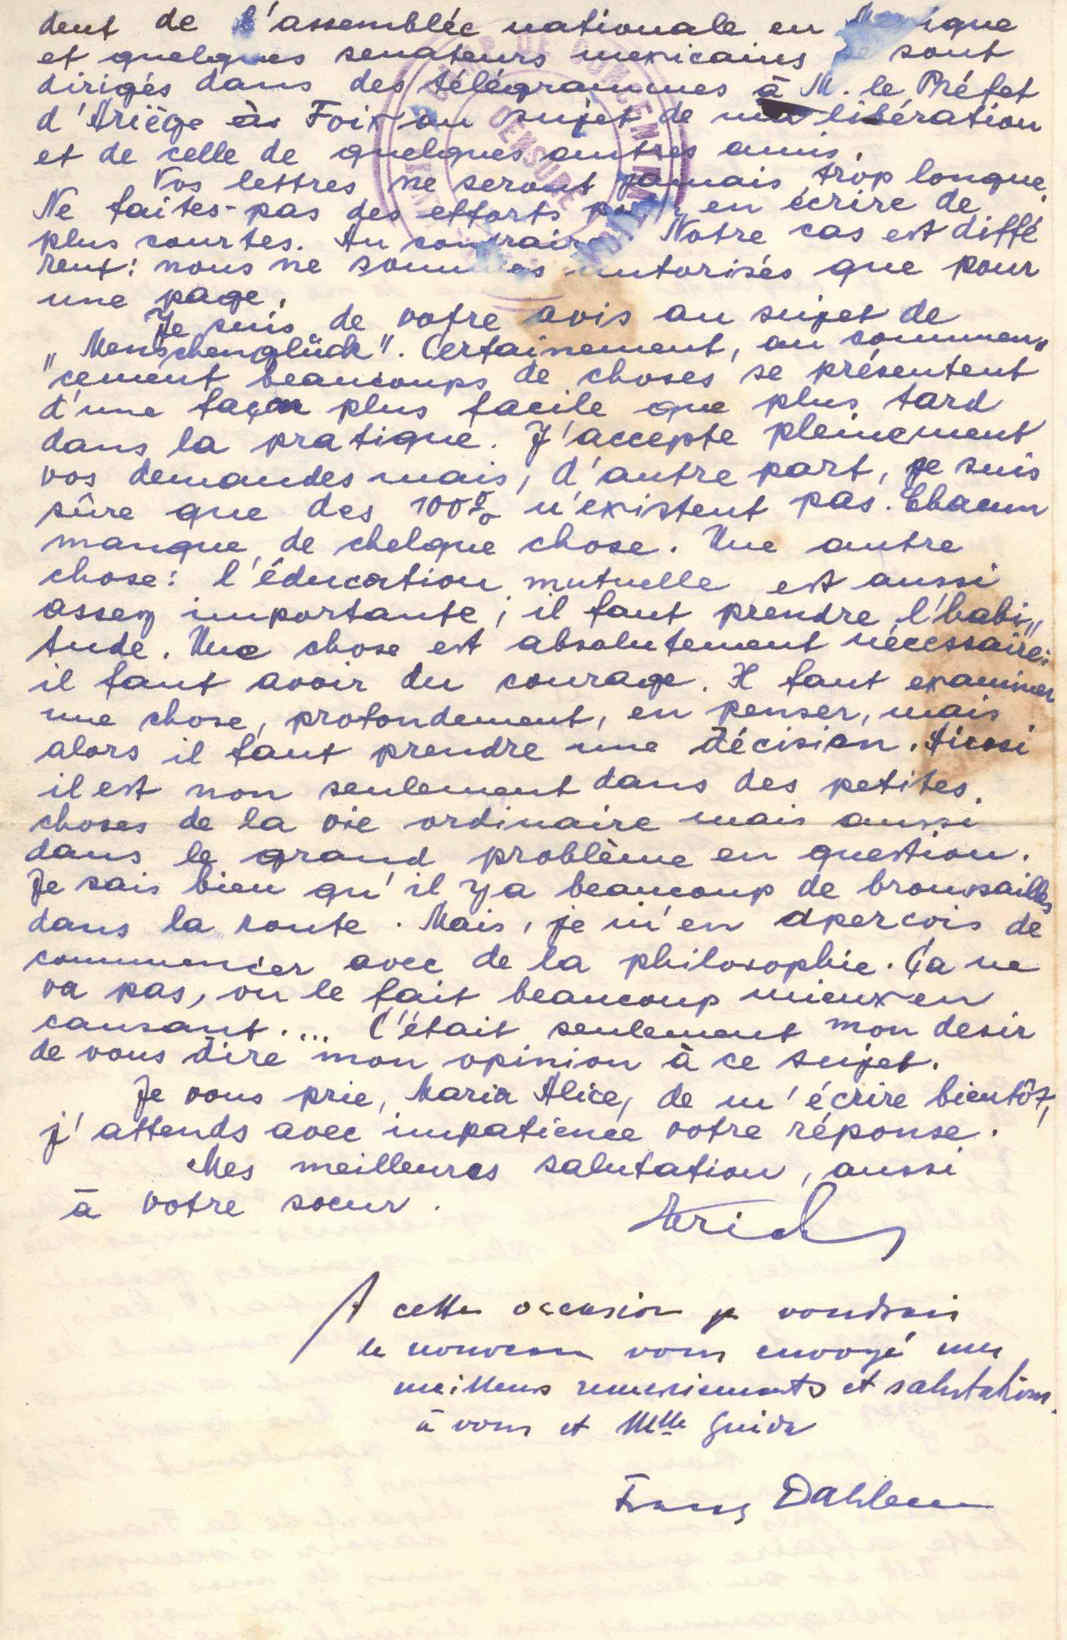 dent de l'assemblée nationale en
et quelques senateurs mexicains se sont
dirigés dans des télégrammes à M. le Préfet
d'Ariège à Foix au sujet de ma libération
et de celle de quelques autres amis.
Vos lettres ne seront jamais trop longue.
Ne faites-pas des efforts pour en écrire de
plus courtes. Au contraire. Notre cas est diffé
rent: nous ne sommes autorisés que pour
une page.
Je suis de votre avis au sujet de
„Menschenglück". Certainement, au commen„
"cement beaucoups de choses se présentent
d'une façon plus facile que plus tard
dans la pratique. J'accepte pleinement
vos demandes mais, d'autre part, je suis
sûre que des 100% n'existent pas. Chacun
manque de chelque chose. Une autre
chose: l'éducation mutuelle est aussi
assez importante; il faut prendre l'habi„
tude. Une chose est absolutement nécessaire:
il faut avoir du courage. Il faut examiner
une chose, profondement, en penser, mais
alors il faut prendre une décision. Aicosi
il est non seulement dans des petites
choses de la vie ordinaire mais aussi
dans le grand problème en question.
Je sais bien qu'il y a beaucoup de broussailles
dans la route. Mais, je m'en apercois de
commencer avec de la philosophie. Ça ne
va pas, on le fait beaucoup mieux en
causant.... C'était seulement mon desir
de vous dire mon opinion à ce sujet.
Je vous prie, Maria Alice, de m'écrire bientôt,
j'attends avec impatience votre réponse.
Mes meilleures salutation, aussi
à votre soeur.
A cette occasion je voudrais
de nouveau vous envoyé mes
meilleurs remerciements et salutations
à vous et Mlle Guida
Franz Dahlem
CENSURE